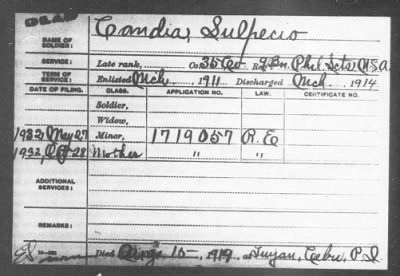 DEAD
NAME OF SOLDIER: Candia, Sulpecio
SERVICE: Late rank, Co. 35 Co Reg. 9 Bn. Phil. Scts, U.S.A.
TERM OF SERVICE: Enlisted Mch 1911 Discharged Mch 1914
DATE OF FILING. CLASS. APPLICATION NO. LAW. CERTIFICATE NO.
Soldier,
Widow,
1932, May 27 Minor, 1719057 R.E
1932, 28 Mother " "
ADDITIONAL SERVICES:
REMARKS:
Died 15-, 1919, at Tuyan, Cebu, P.I